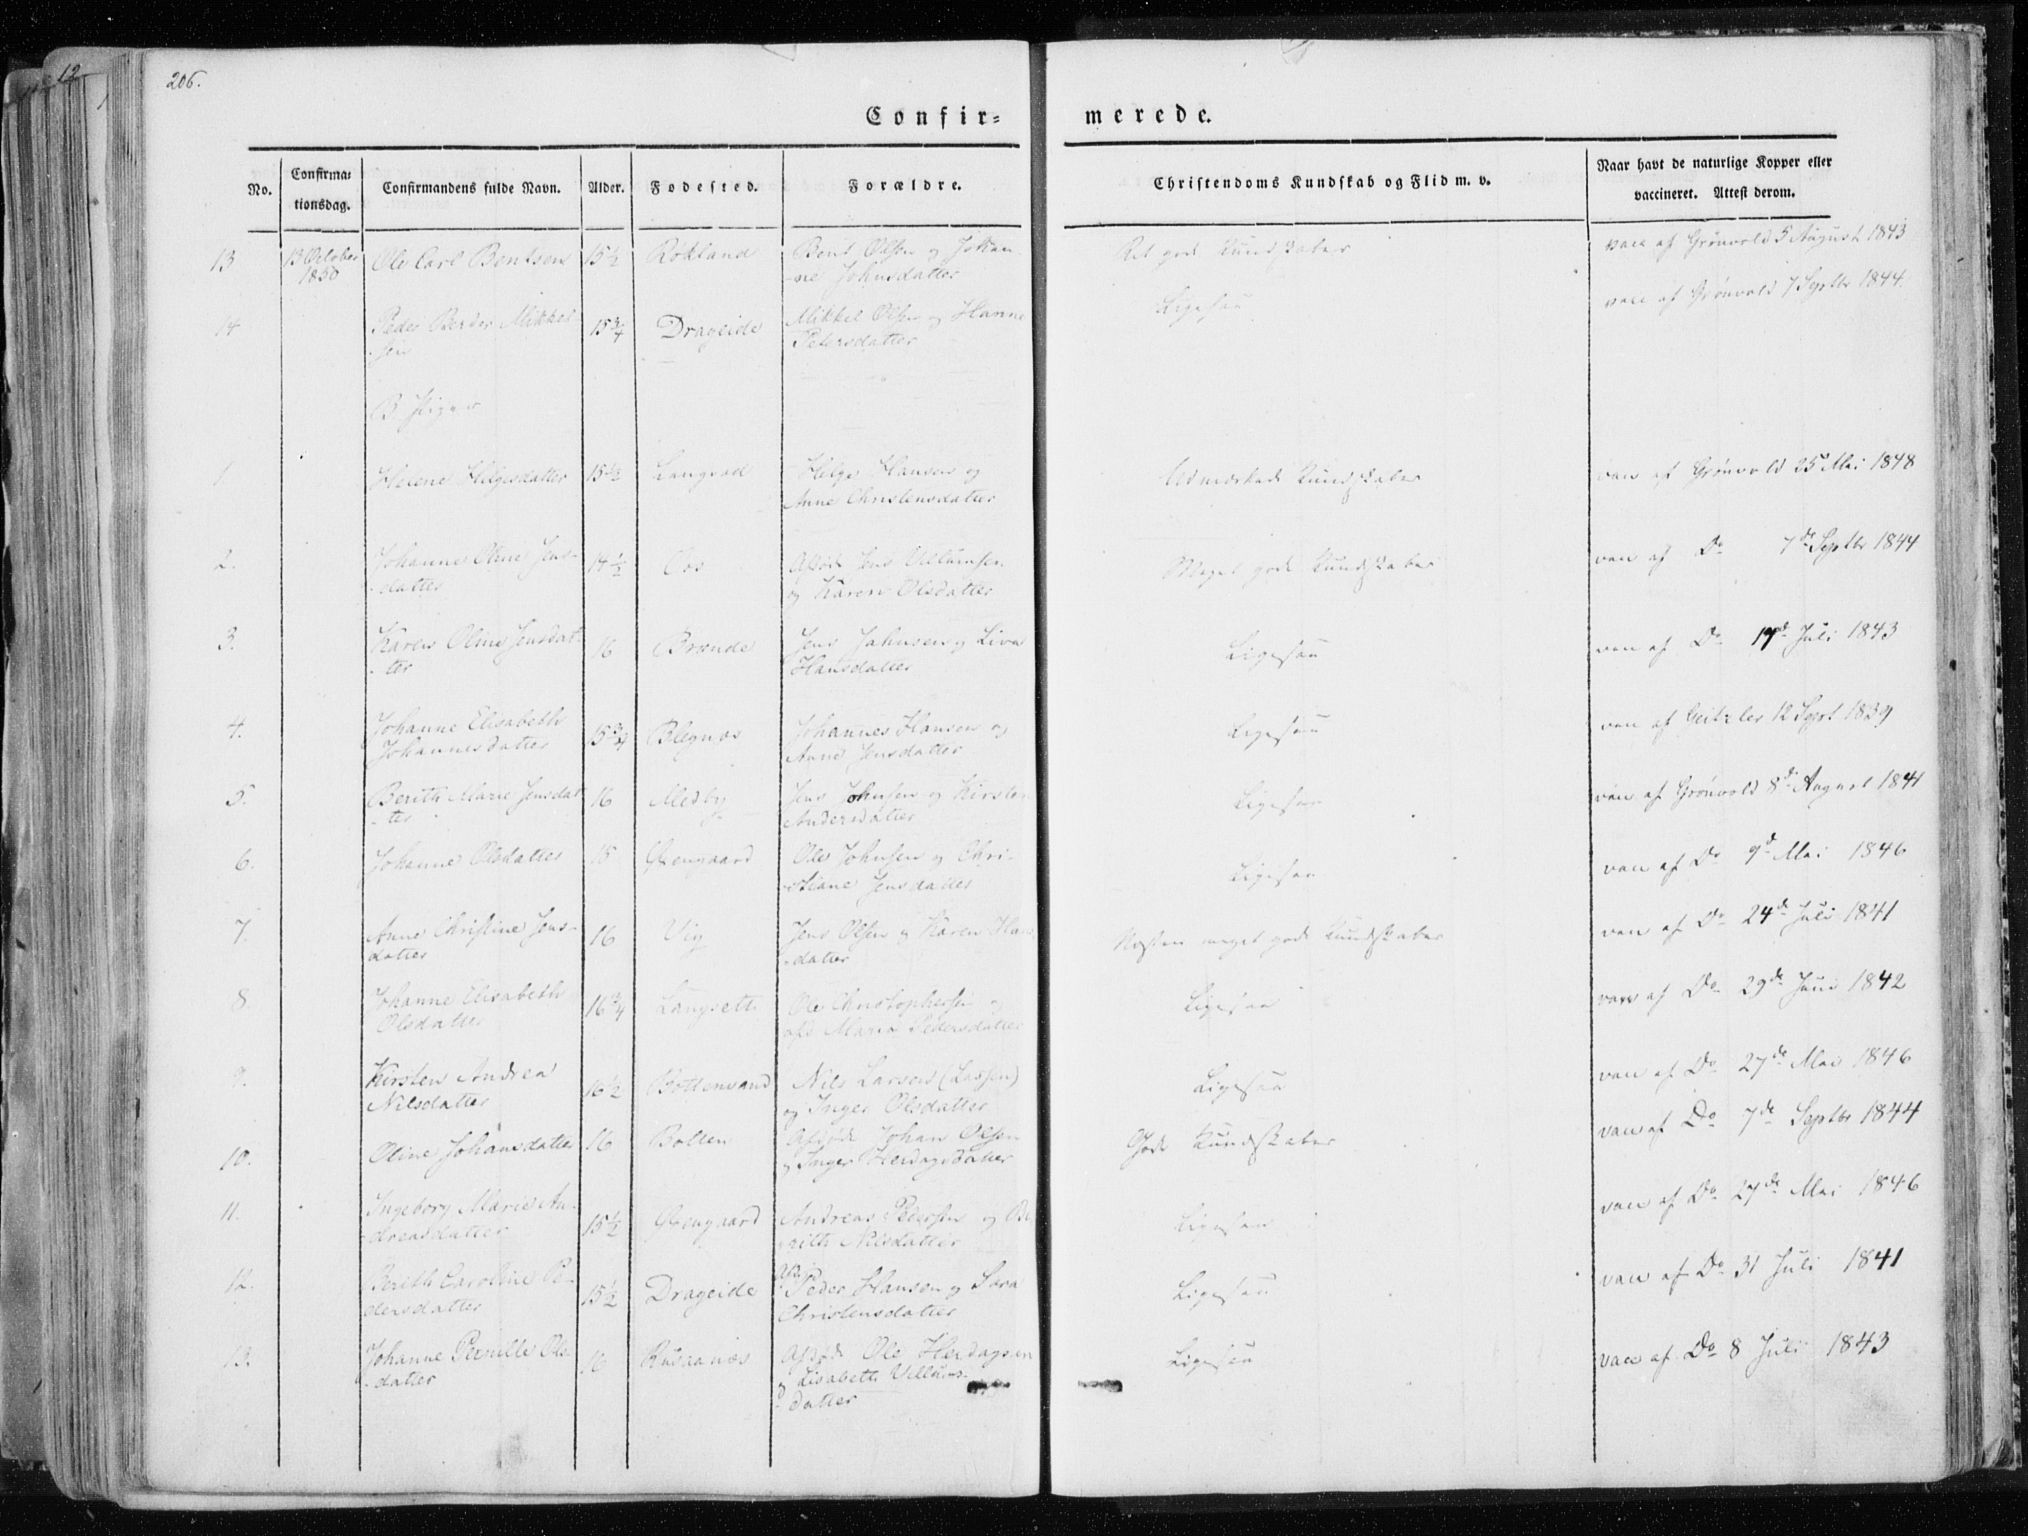 12
206.
Confir=
merede.
No.
Confirma=
tionsdag.
Confirmandens fulde Navn.
Alder.
Fodested.
Forældre.
Christendoms Kundskab og Flid m. v.
Naar havt de naturlige Kopper eller
vaccineret. Attest derom.
13 13 October 1850 Ole Carl Bentsen 15½ Rokland Bent Olsen og Johan-
ne Johnsdatter Ret gode Kundskaber vacc af Grönvold 5 August 1843
14 Peder Mikkel-
sen 15¾ Drageide Mikkel Olsen og Hanne
Petersdatter Ligesaa vacc af Grönvold 7 Septbr 1844.
B. Piger
1 Helene Helgesdatter 15½ Langvad Helge Hansen og
Anne Christensdatter Udmærkede Kundskaber vacc af Grönvold 25 Mai 1848
2. Johanne Oline Jens-
datter 14½ Oos Afdöde Jens Villumsen
og Karen Olsdatter Meget gode Kundskaber vacc af Do 7de Septbr 1844
3. Karen Oline Jensdat-
ter 16 Brænde Jens Johnsen og Liva
Hansdatter Ligesaa vacc af Do 17de Juli 1843
4. Johanne Elisabeth
Johannesdatter 15¾ Blegnæs Johannes Hansen og
Anne Jensdatter Ligesaa vacc af Geitzler 12 Sept 1839
5. Berith Marie Jensdat-
ter 16 Medby Jens Johnsen og Kirsten
Andersdatter Ligesaa vacc af Grönvold 8de August 1841
6. Johanne Olsdatter 15 Ole Johnsen og Chri-
stiane Jensdatter Ligesaa vacc af Do 9de Mai 1846
7. Anne Christine Jens-
datter 16 Vig Jens Olsen og Karen Hans-
datter Næsten meget gode Kundskaber vacc af Do 24de Juli 1841
8 Johanne Elisabeth
Olsdatter 16¾ Langsetti Ole Christophersen og
afd Maria Pedersdatter Ligesaa vacc af Do 29de Juni 1842
9. Kirsten Andrea
Nilsdatter 16½ Bottenvand Nils Larsen (Lassen)
og Inger Olsdatter Ligesaa vacc af Do 27de Mai 1846
10. Oline Johansdatter 16 Botten Afdöde Johan Olsen
og Inger Herdagsdatter Gode Kundskaber vacc af Do 7de Septbr 1844
11. Ingeborg Marie An-
dreasdatter 15½ Andreas Pedersen og Be-
rith Nilsdatter Ligesaa vacc af Do 27de Mai 1846
12. Berith Caroline Pe-
dersdatter 15½ Drageide Afd. Peder Hansen og Sara
Christensdatter Ligesaa vacc af Do 31 Juli 1841
13. Johanne Pernille Ols-
datter 16 Rusaanæs Afdöde Ole Herdagsen
og Lisabeth Villums-
datter Ligesaa vacc af Do 8 Juli 1843